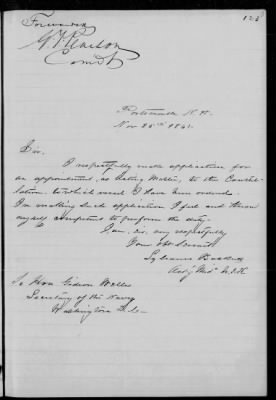 Forwarded
G. F. Pearson
Comdt
Portsmouth N.H.
Nov 25th 1861.
Sir.
I respectfully make application for
an appointment, as Acting Master, to the Constel-
lation to which vessel I have been ordered.
In making such application I feel and know
myself competent to perform the duty.
I am, sir, very respectfully
Your obt Servant
Sylvanus
To Hon Gideon Welles
Secretary of the Navy
Washington D.C.